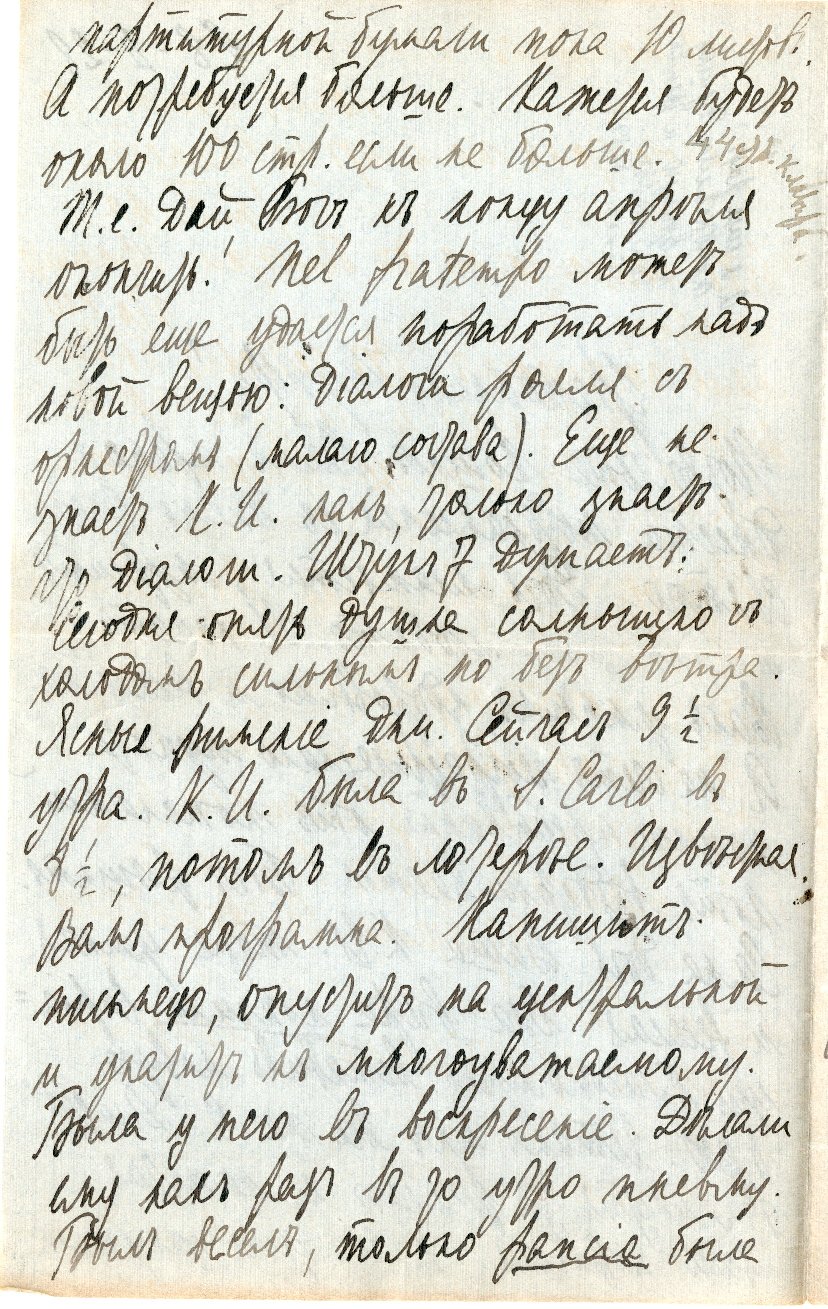 партитурной бумаги пока 10 листовъ.
А потребуется больше. Кажется будетъ
около 100 стр. если не больше.
Т.е. Дай Богъ къ концу апрѣля
окончить! Nel fratempo можетъ
быть еще удается поработать надъ
новой вещью: Діалоги рояля съ
оркестромъ (малаго состава). Еще не
знаетъ К.И. какъ, только знаетъ
что Діалоги. Штукъ 7 думаетъ.
Сегодня опять душка солнышко съ
холодомъ сильнымъ но безъ вѣтра.
Ясные римскіе дни. Сейчасъ 9 ½
утра. К.И. была въ S. Carlo въ
8 ½, потомъ въ лоттерѣе.
Вамъ программа. Напишетъ
письмецо, опуститъ на центральной
и укатитъ къ многоуважаемому.
Была у него въ воскресеніе. Дѣлали
ему какъ разъ въ то утро пневму.
Былъ веселъ, только pancia была